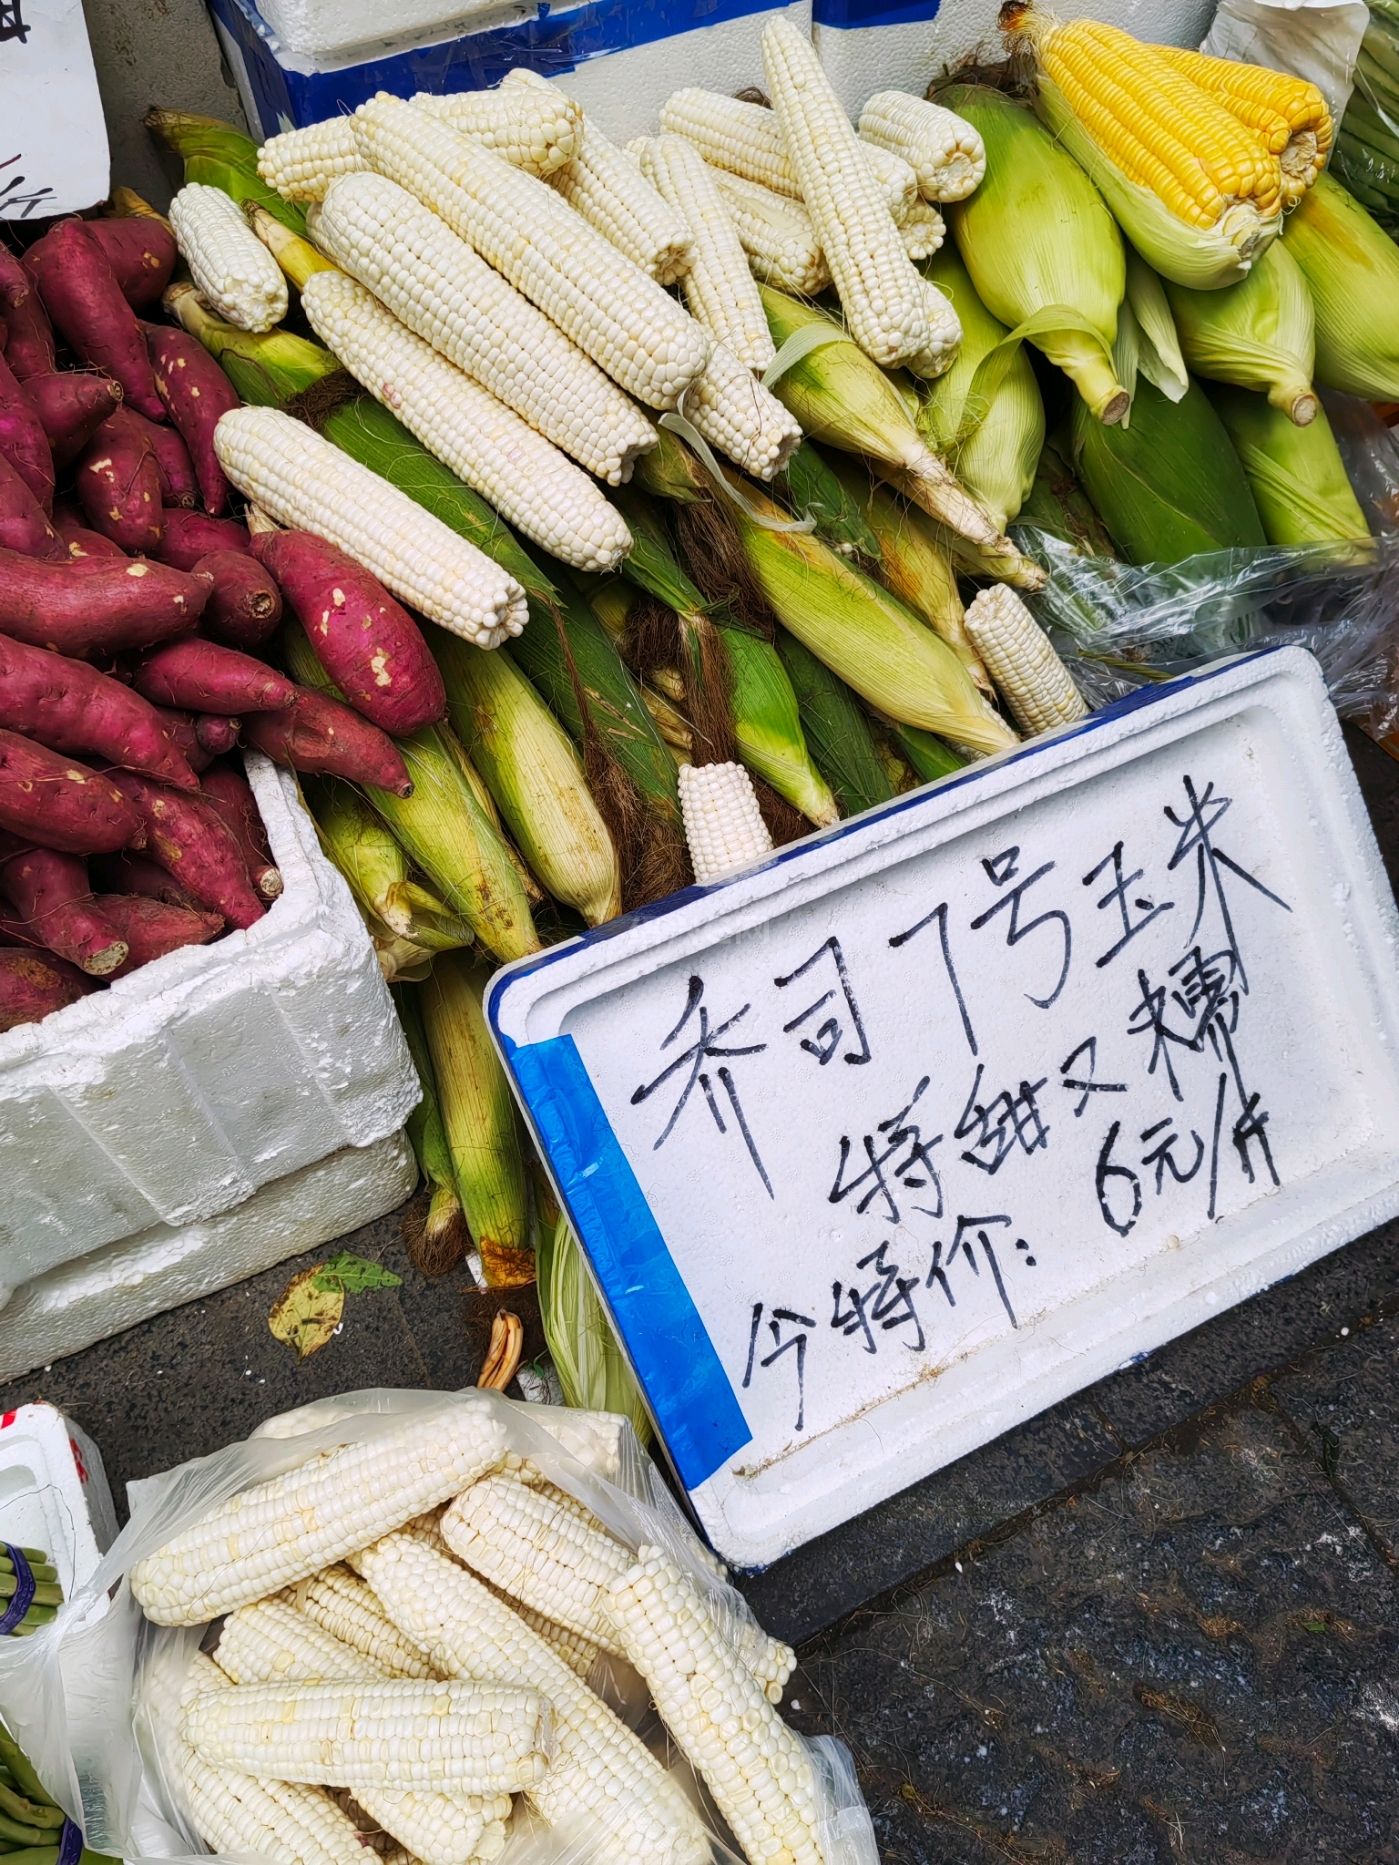 乔司7号玉米
特甜又糯
今特价: 6元/斤